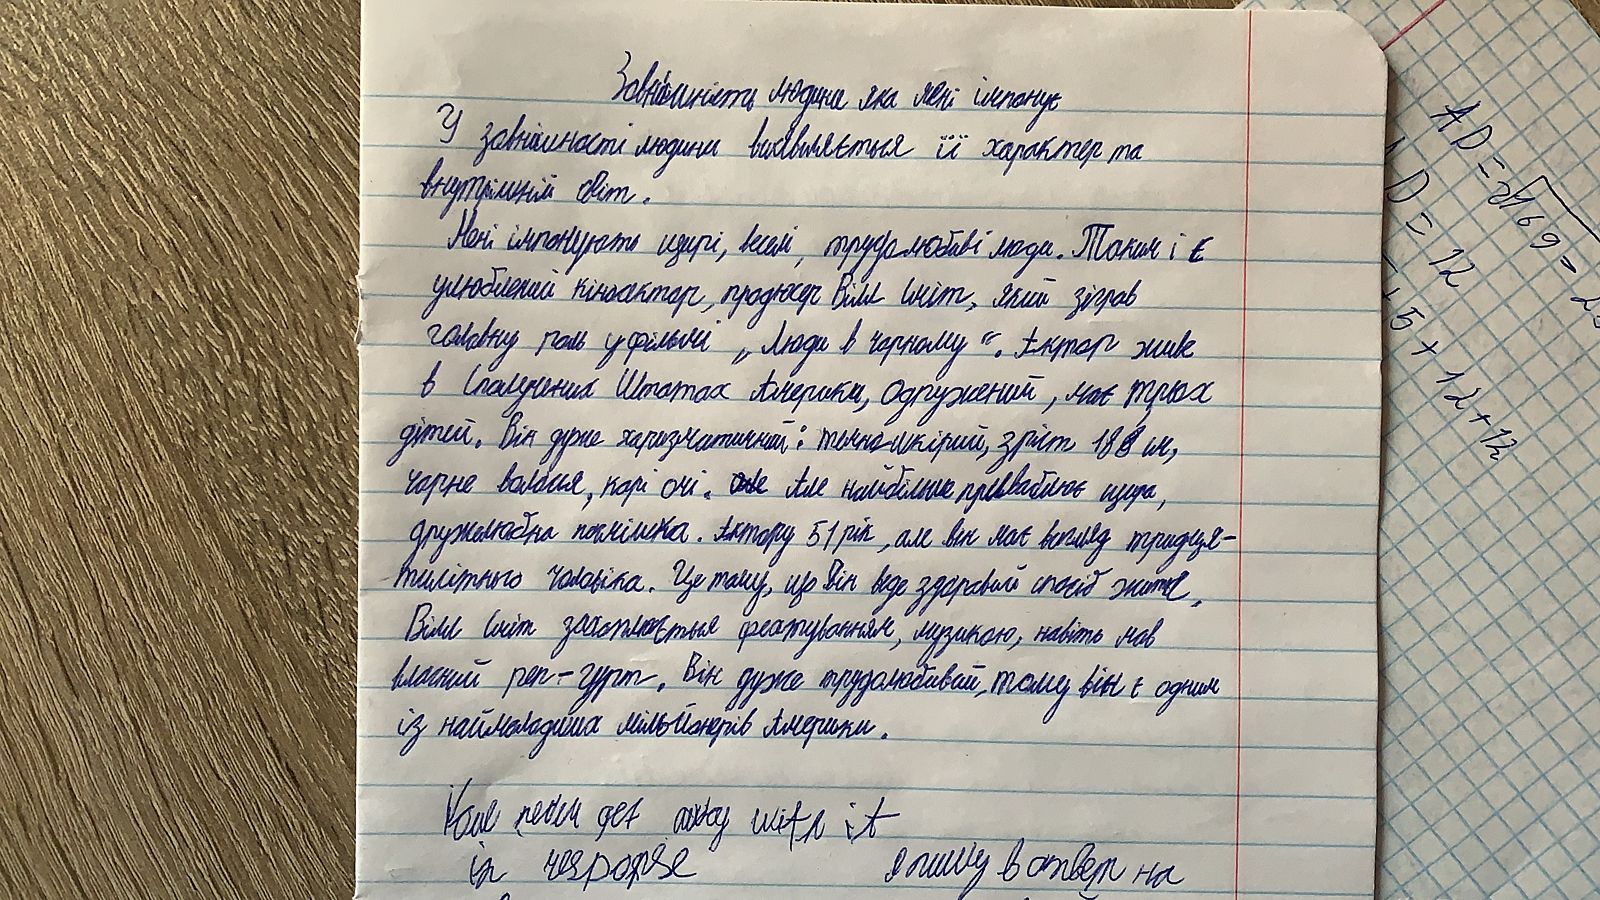 Зовнішність людини яка мені імпонує
У зовнішності людини виявляється її характер та
внутрішній світ.
Мені імпонують щирі, веселі, трудолюбиві люди. Таким і є
улюблений кіноактор, продюсер Вілл Сміт, який зіграв
головну роль у фільмі „Люди в чорному“. Актор живе
в Сполучених Штатах Америки, одружений, має трьох
дітей. Він дуже харизматичний: темно-шкірий, зріст 188 см,
чорне волосся, карі очі. Але найбільше приваблює щира,
дружелюбна посмішка. Актору 51 рік, але він має вигляд тридця-
тилітнього чоловіка. Це тому, що він веде здоровий спосіб життя.
Вілл Сміт захоплюється фехтуванням, музикою, навіть мав
власний реп-гурт. Він дуже трудолюбивий, тому він є одним
із наймолодших мільйонерів Америки.
never get away with it
in response я пишу в ответ на
AD =
D = 12
5 + 12 + 12